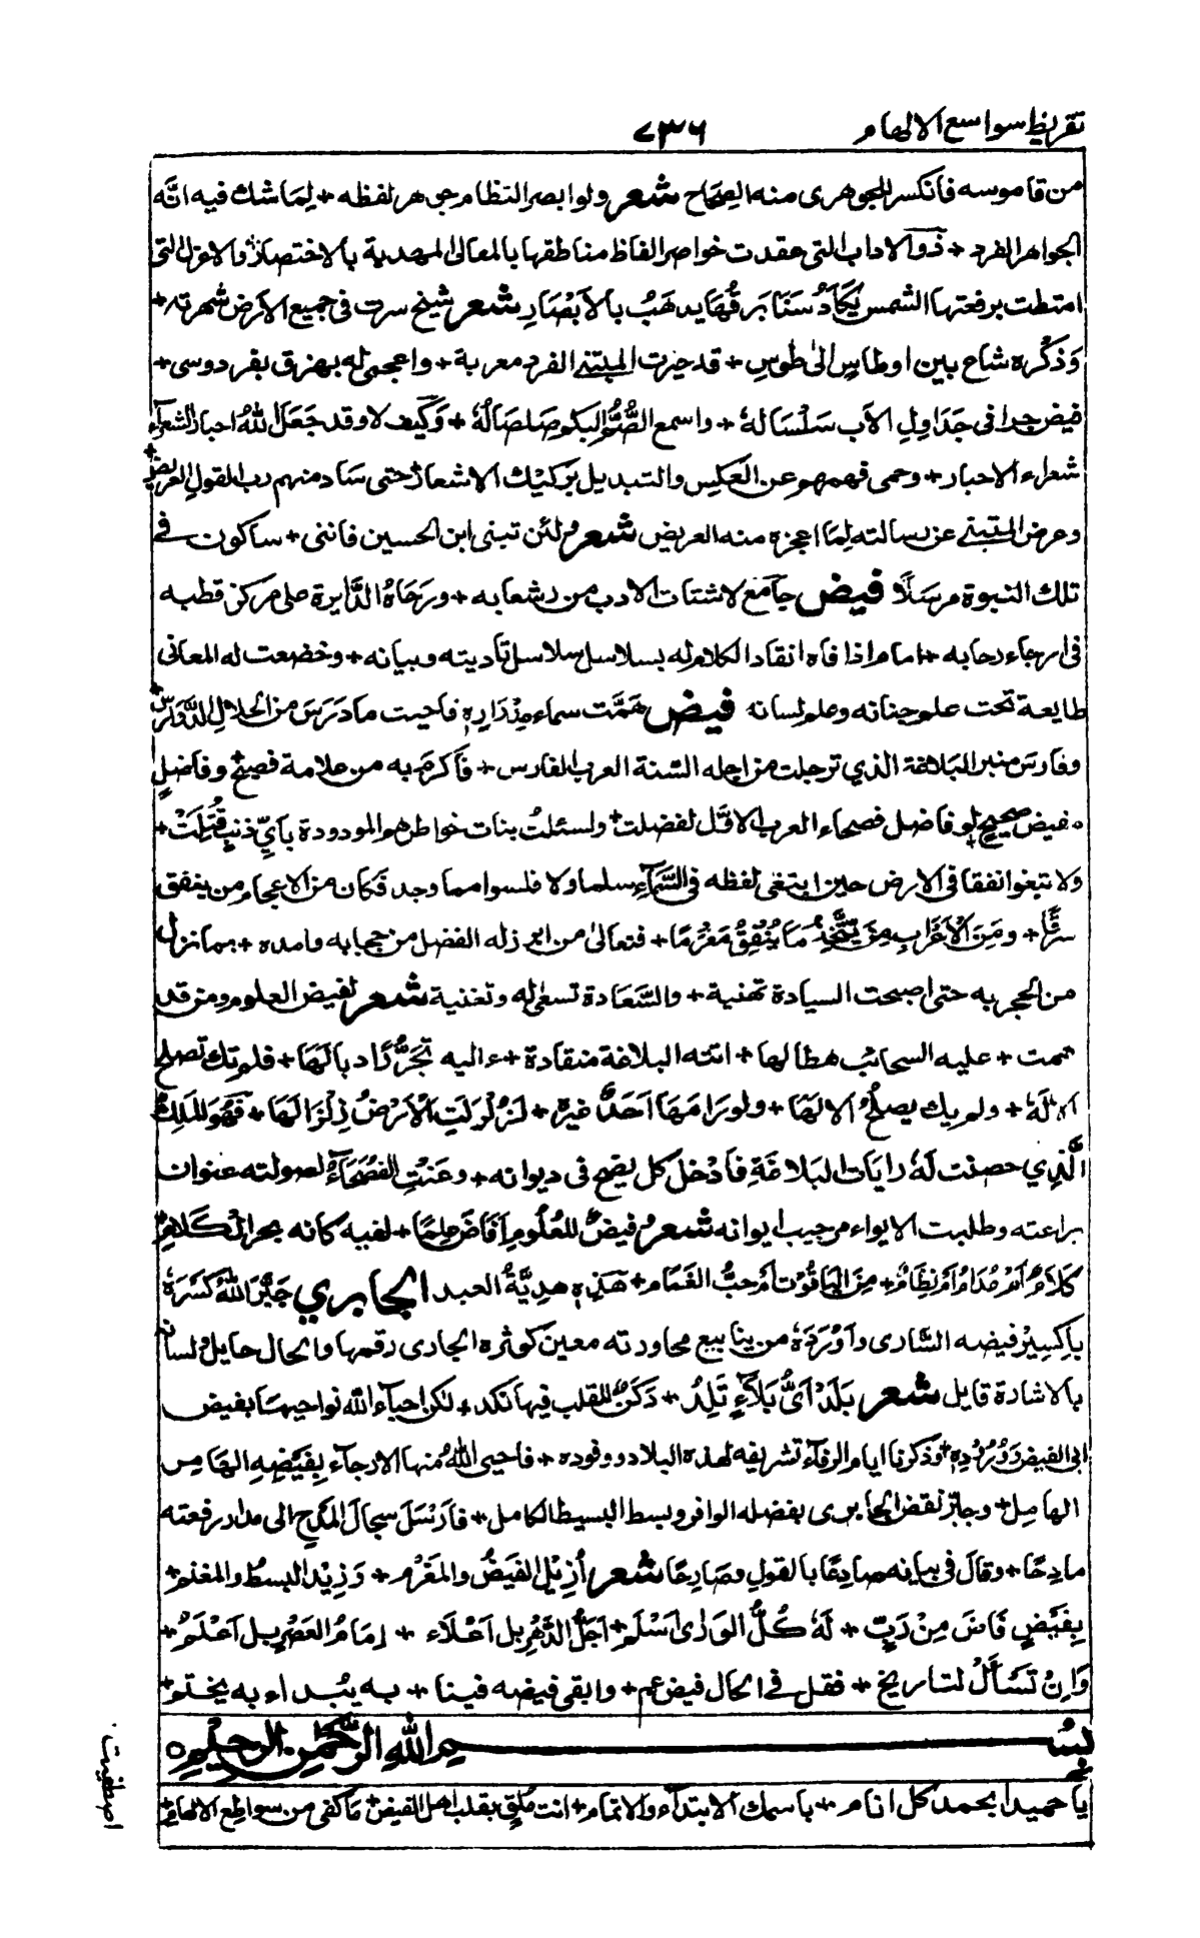 تقريظ سواسع الالهام ٧٣٦
من قاموسه فانكسر الجوهرى منه الصحاح شعر ولو ابصر النظام جوهر لفظه + لِمَا شك فيه انّه
الجواهر الفرد + ذو الاداب التى عقدت خواصر الفاظ مناطقها بالمعالى المهدية بالاختصاز والاعزل التى
امتطت برفعتها الشمس يَكَادُ سَنَا بَرقُهَا يذهَبُ بالأَبْصَارِ شعر شيخ سرت فى جميع الأرض شهرته +
وَذكْره شاح بين اوطاسٍ الىٰ طوسِ + قد حيرت المبتنے الفرد معربة + واعجمى له بهزق بفردوسى +
فيض جرا فى جَدَاوِلِ الأب سَلْسَالهٗ + واسمع الصُّمُّ البكم صَلصَالُهٗ + وَكَيف لا وقد جَعَلَ اللهُ احبار الشعرآء
شعراء الاحبار + وحمى فهمهم عن العَكسِ والتبديل بَركيْك الاشعار حتى سَاد منهم رب القول العريض +
وعرض المتبنے عن رسالته لِمَا اعجزه منه العريض شعر لئن تبنى ابن الحسين فاننى + ساكون فے
تلك النبوة مرسَلًا فيض جآمع لاشتات الادب من شعابه + ورَحَاهُ الدَّايرة على مركز قطبه
فى ارجاء رحابه + امام اذا فاه انقاد الكلام له بسلاسل سلاسل تأديته وبيانه + وخضعت له المعانى
طايعة تحت علو جنانه وعلو لسانه فيض هَمَّت سماء مِدْرَارِهٖ فاحيت ما دَرَسَ من الحلال الدَّوَارِس +
وفارسَ منبر البَلاغة الذي ترجلت من اجله السّنة العرب الفارس + فَاكرم به من علامة فصيح وفاضلٍ
فيض صحيح لو فاضل فصحاء العرب الاوّل لفضلت + ولسئلتُ بنات خواطرهم المودودة بأَيِّ ذَنبٍ قُتِلَتْ +
ولا نتبغوا نفقا فى الارض حين ابتغى لفظه فى السَّمَآءِ سلما ولا فلسوا مما وجد فكان من الاعجام من ينفق
سِرًّا + ومِنَ الأَعْرَابِ مَن يَتَّخِذُ مَا يُنْفِقُ مَغْرَمًا + فتعالىٰ من ابرزله الفضل من حجابه وامده + بما نزل
من الحجر به حتى اصبحت السيادة تهنية + والسَّعَادة تسعىٰ له وتغنية شعر لفيض العلوم ومن قد
همت + عليه السحائب هطالها + اتته البلاغة منقادة + واليه تجَرُّرُ اذيالَهَا + فلم تك تصلح
الا لَهٗ + ولم يك يصلُحُ الا لهَا + ولو رَامَهَا اَحَدٌ غيرهٗ + لَزُلزِلَتِ الأَرْضُ زِلزَالَهَا + فَهُوَ المَلِكُ
الَّذِي حصنت لَهٗ رايَات البَلاغَةِ فادْخل كل يضج فى ديوانه + وعَنتِ الفصُحَآءُ لصولته عنوان
براعته وطلبت الايواء من جيب ايوانه شعر فيضٌ للعُلُومِ اَفَاضَ عِلمًا + لفيه كانه بحر الكَلامِ
كَلَامٌ اَمْ مُدَامٌ اَمْ نِظَامٌ + مِنَ اليَاقُوْتِ اَمْ حبُّ الغَمَام + هَذِهٖ هديَّةُ العبد الجابري جَبَّرَ اللهُ كَسْرَهٗ
باكسِيْر فيضه السَّارى واَوْرَدَهٗ من ينابيع محاورته معين كوثره الجارى رقمها والحال حايل ولسان
بالاشارة قايل شعر بَلَدٌ اَىُّ بَلَآءٍ تَلِدُ + دَكَنٌ للقلب فيها نكد + لكن احبآء الله نواحيهَا بفيض
ابى الفيض وَوُرُوْدِهٖ + وذكرنا ايام الرفآء تشريفه لهذه البلاد ووفوده + فاحيى اللهُ منها الارجآء بِفَيْضِهِ الهَامِر
الهامِل + وجابَرَ نقض الجابرى بفضله الوافر وبسط البسيط الكامل + فاَرْسَلَ سِجالَ المَدْح الى مدار رفعته
مادِحًا + وقالَ فى بيانه صادِعًا بالقول وصَادِعًا شعر اُزِيْلَ الفَيضُ والمَغرَم + وَزِيْد البسطُ والمغنم +
بِفَيْضٍ فَاضَ مِنْ رَبٍّ + لَهٗ كُلُّ الوَارىٰ اَسْلَم + اَجَلُّ الدَّهْرِ بل اَعْلَاء + اِمَامُ العَصْرِ بل اَعْلَمُ +
وَاِنْ تَسْأَلْ لتاريخ + فقل فے الحال فيض عم + وابقى فيضه فينا + به يُبْداء به يختم +
بسْــــــم اللهِ الرَّحْمٰنِ الرحيم
يا حميدا بحمد كل انام + باسمك الابتدآء والاتمام + انت مُلقٍ بقلب اهل الفيض + مَا كفى من سواطع الالهام +